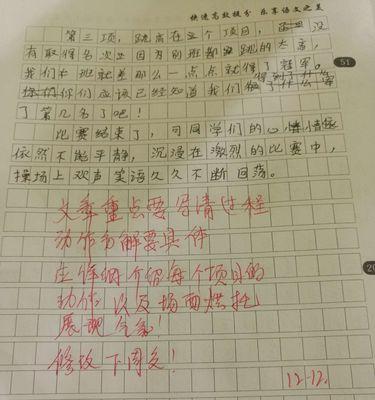 快速高效提分 乐享语文之美
第三项，跳高在这个项目，没
有取得名次，因为别班都跳的太高，
我们七班就差那么一点点就得了冠军。
你们应该已经知道我们得了什么第
了第几名了吧！
比赛结束了，可同学们的心情
依然不能平静，沉漫在激烈的比赛中，
操场上欢声笑语久久不断回荡。
51
文章重点要写清过程
动作分解要具体
生作俩介绍每个项目的
动作 以及场面烘托
展现气氛！
修改下周交！
12-12.
20